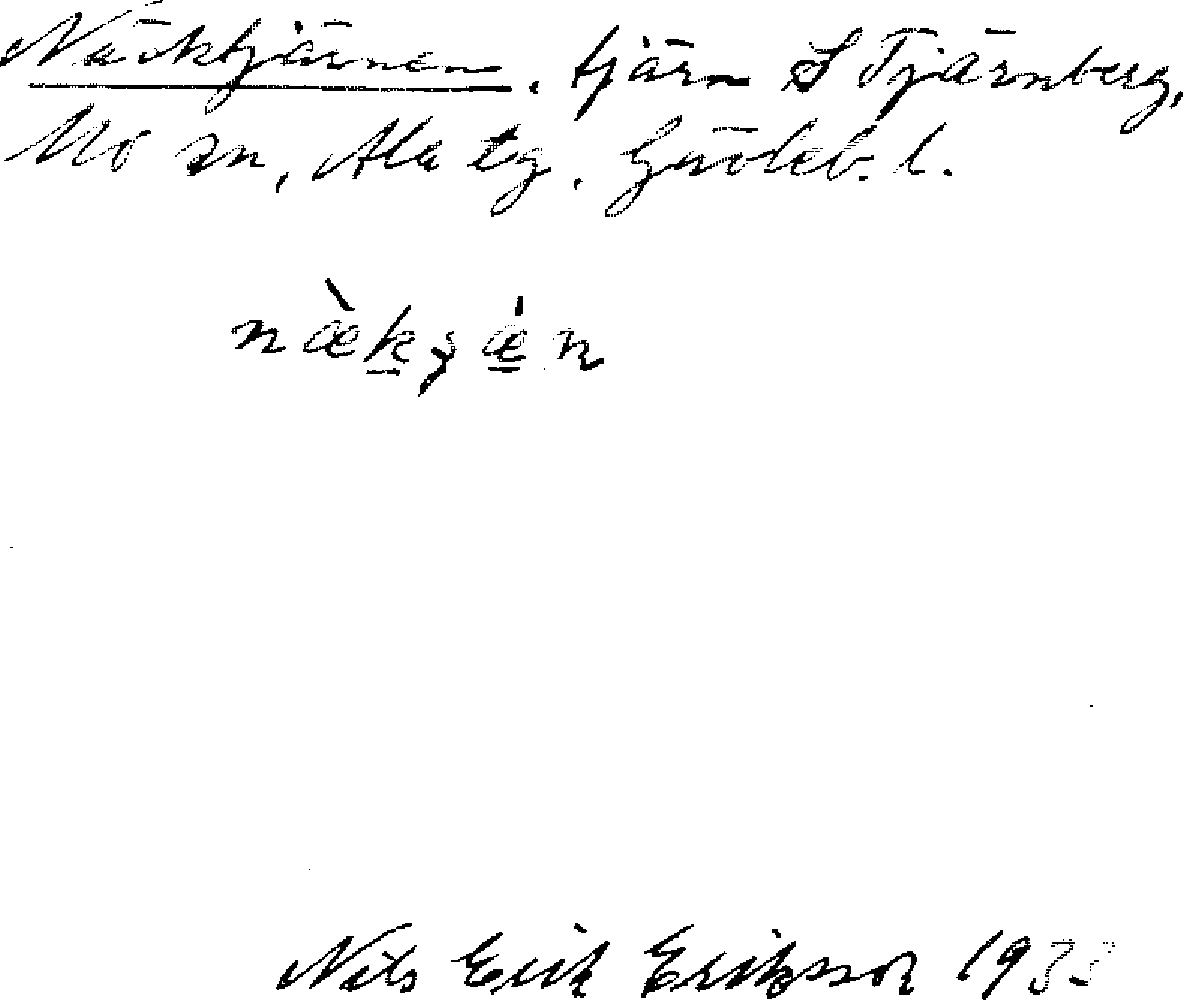 Näcktjärnen. tjärn S Tjärnberg,
Mo sn, Ala tg. Gävleb. l.
næ̀k̲ȷǽ̲n
Nils Erik Eriksson 1933